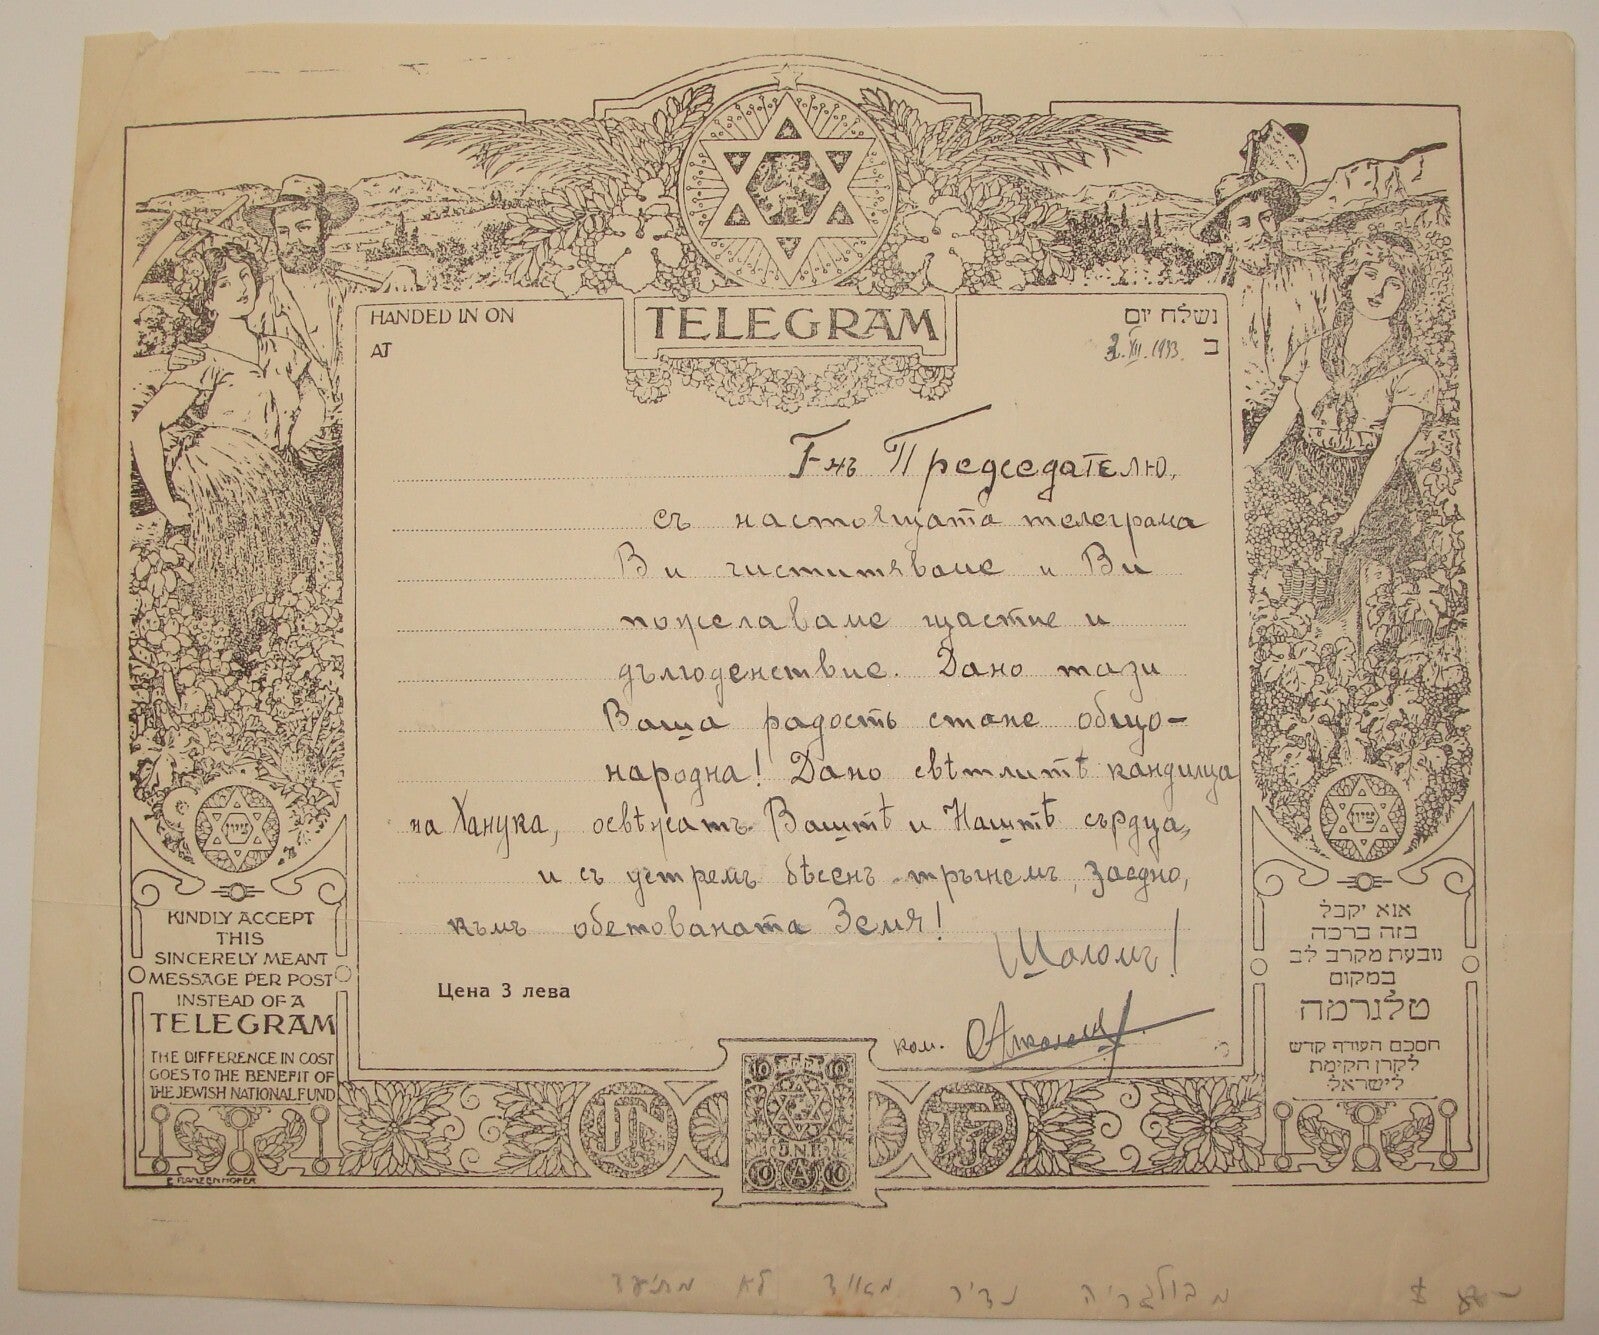 TELEGRAM
HANDED IN ON
AT
נשלח יום
ב
XII. 1933.
Г-нъ Председателю,
съ настоящата телеграма
Ви чиститяваме и Ви
пожелаваме щастие и
дългоденствие. Дано тази
Ваша радость стане общо-
народна! Дано свѣтлитѣ кандилца
на Ханука, освѣжатъ Вашитѣ и Нашитѣ сърдца,
и съ устремъ бѣсенъ тръгнемъ, заедно,
къмъ обетованата Земя!
Шаломъ!
Цена 3 лева
ком.
ציון
ציון
KINDLY ACCEPT
THIS
SINCERELY MEANT
MESSAGE PER POST
INSTEAD OF A
TELEGRAM
THE DIFFERENCE IN COST
GOES TO THE BENEFIT OF
THE JEWISH NATIONAL FUND
אנא יקבל
בזה ברכה
נובעת מקרב לב
במקום
טלגרמה
חסכם העודף קדש
לקרן הקימת
לישראל
10 10
J.N.F.
10 A 10
מבולגריה נדיר מאוד לא מתועד